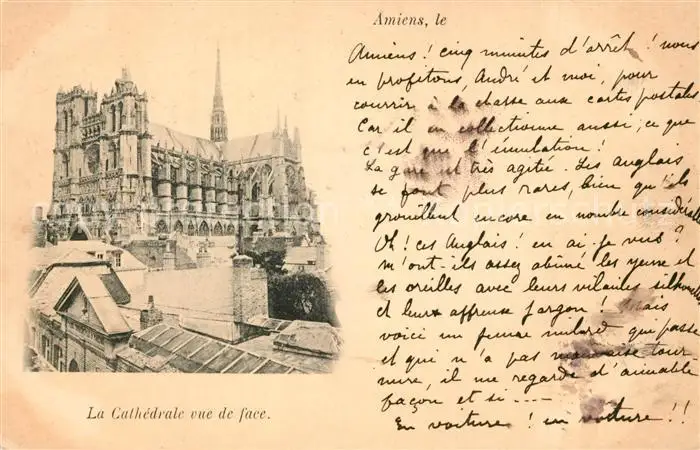 Amiens, le
Amiens! cinq minutes d'arrêt! nous
en profitons, André et moi, pour
courrir à la chasse aux cartes postales
Car il en collectionne aussi; ce que
c'est que l'émulation!
La gare est très agitée. Les anglais
se font plus rares, bien qu'ils
grouillent encore en nombre considérable
Oh! ces Anglais! en ai-je vus?
m'ont-ils assez abîmé les yeux et
les oreilles avec leurs vilaines silhouettes
et leurs affreux jargon! Mais
voici un jeune milord qui passe
et qui n'a pas mauvaise tour
nure, il me regarde d'aimable
façon et si ....
En voiture! en voiture!!
La Cathédrale vue de face.